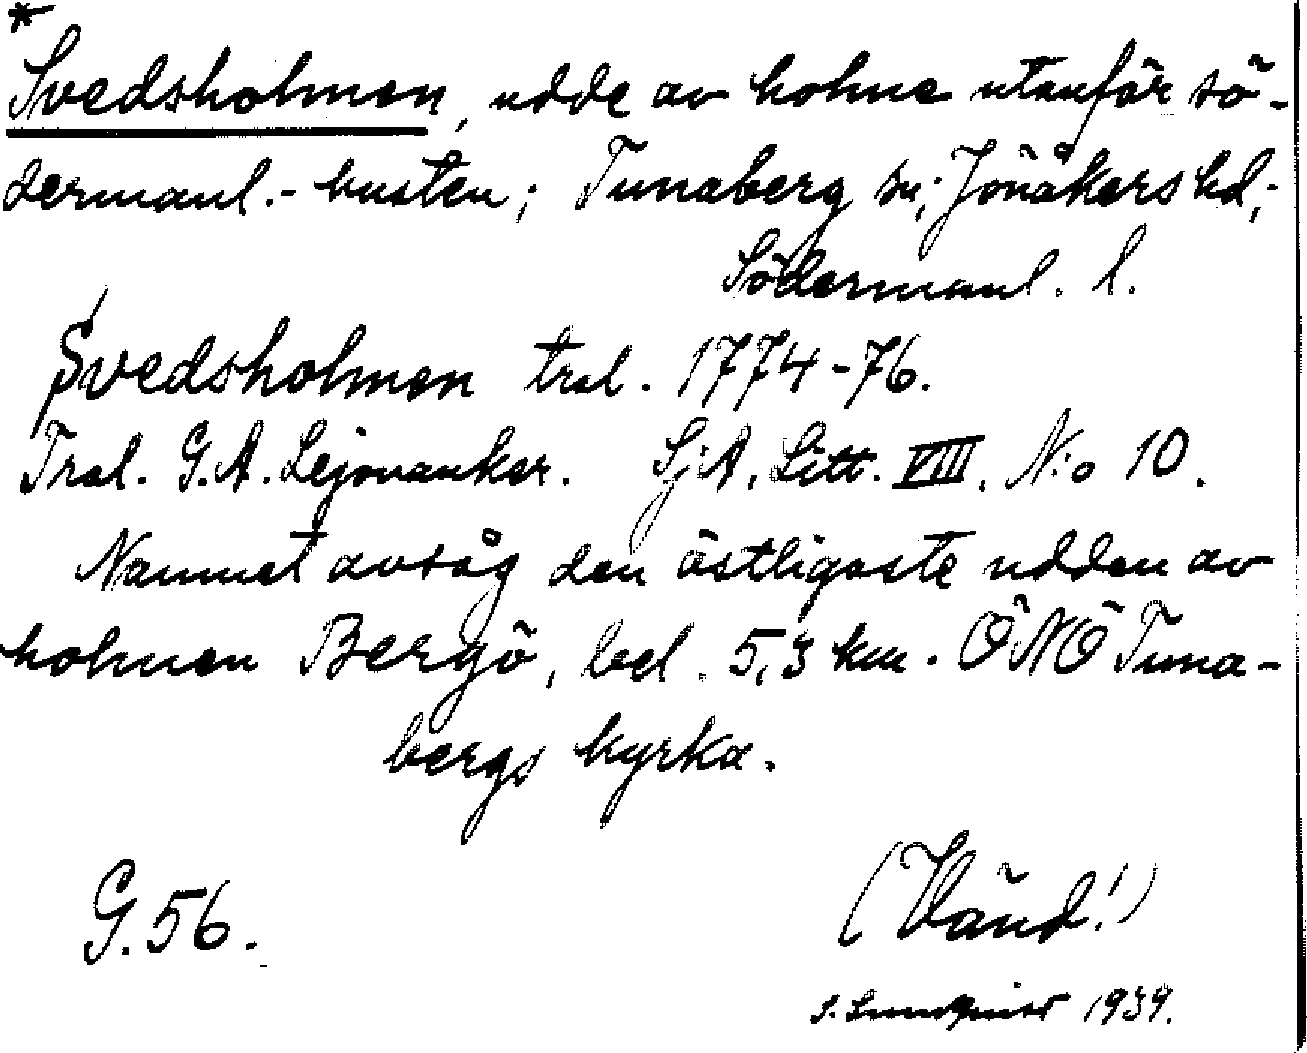 *
Svedsholmen, udde av holme utanför sö-
dermanl.- kusten; Tunaberg sn; Jönåkers hd,;
Södermanl. l.
Svedsholmen tral. 1774-76.
Tral. G.A. Lejonanker. SjA, Litt. VIII. N:o 10.
Namnet avsåg den östligaste udden av
holmen Bergö, bel. 5,3 km. ÖNÖ Tuna-
bergs kyrka.
G. 56.
(Vänd!)
S. Lundquist 1939.